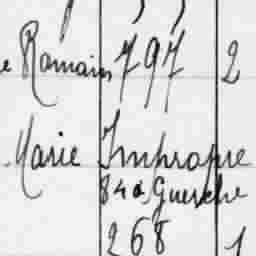 e Romain 797 2
Marie Impropre
84 a, Guerche
268 1